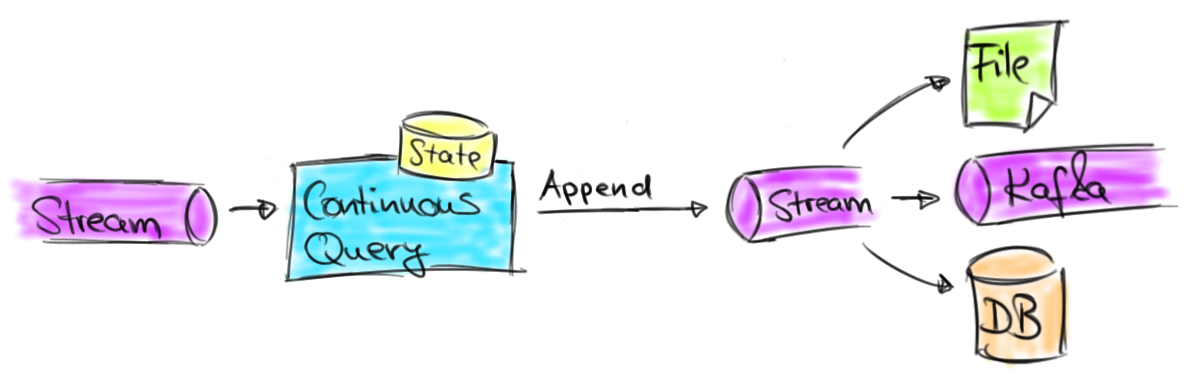 Stream
State
Continuous
Query
Append
Stream
File
Kafka
DB